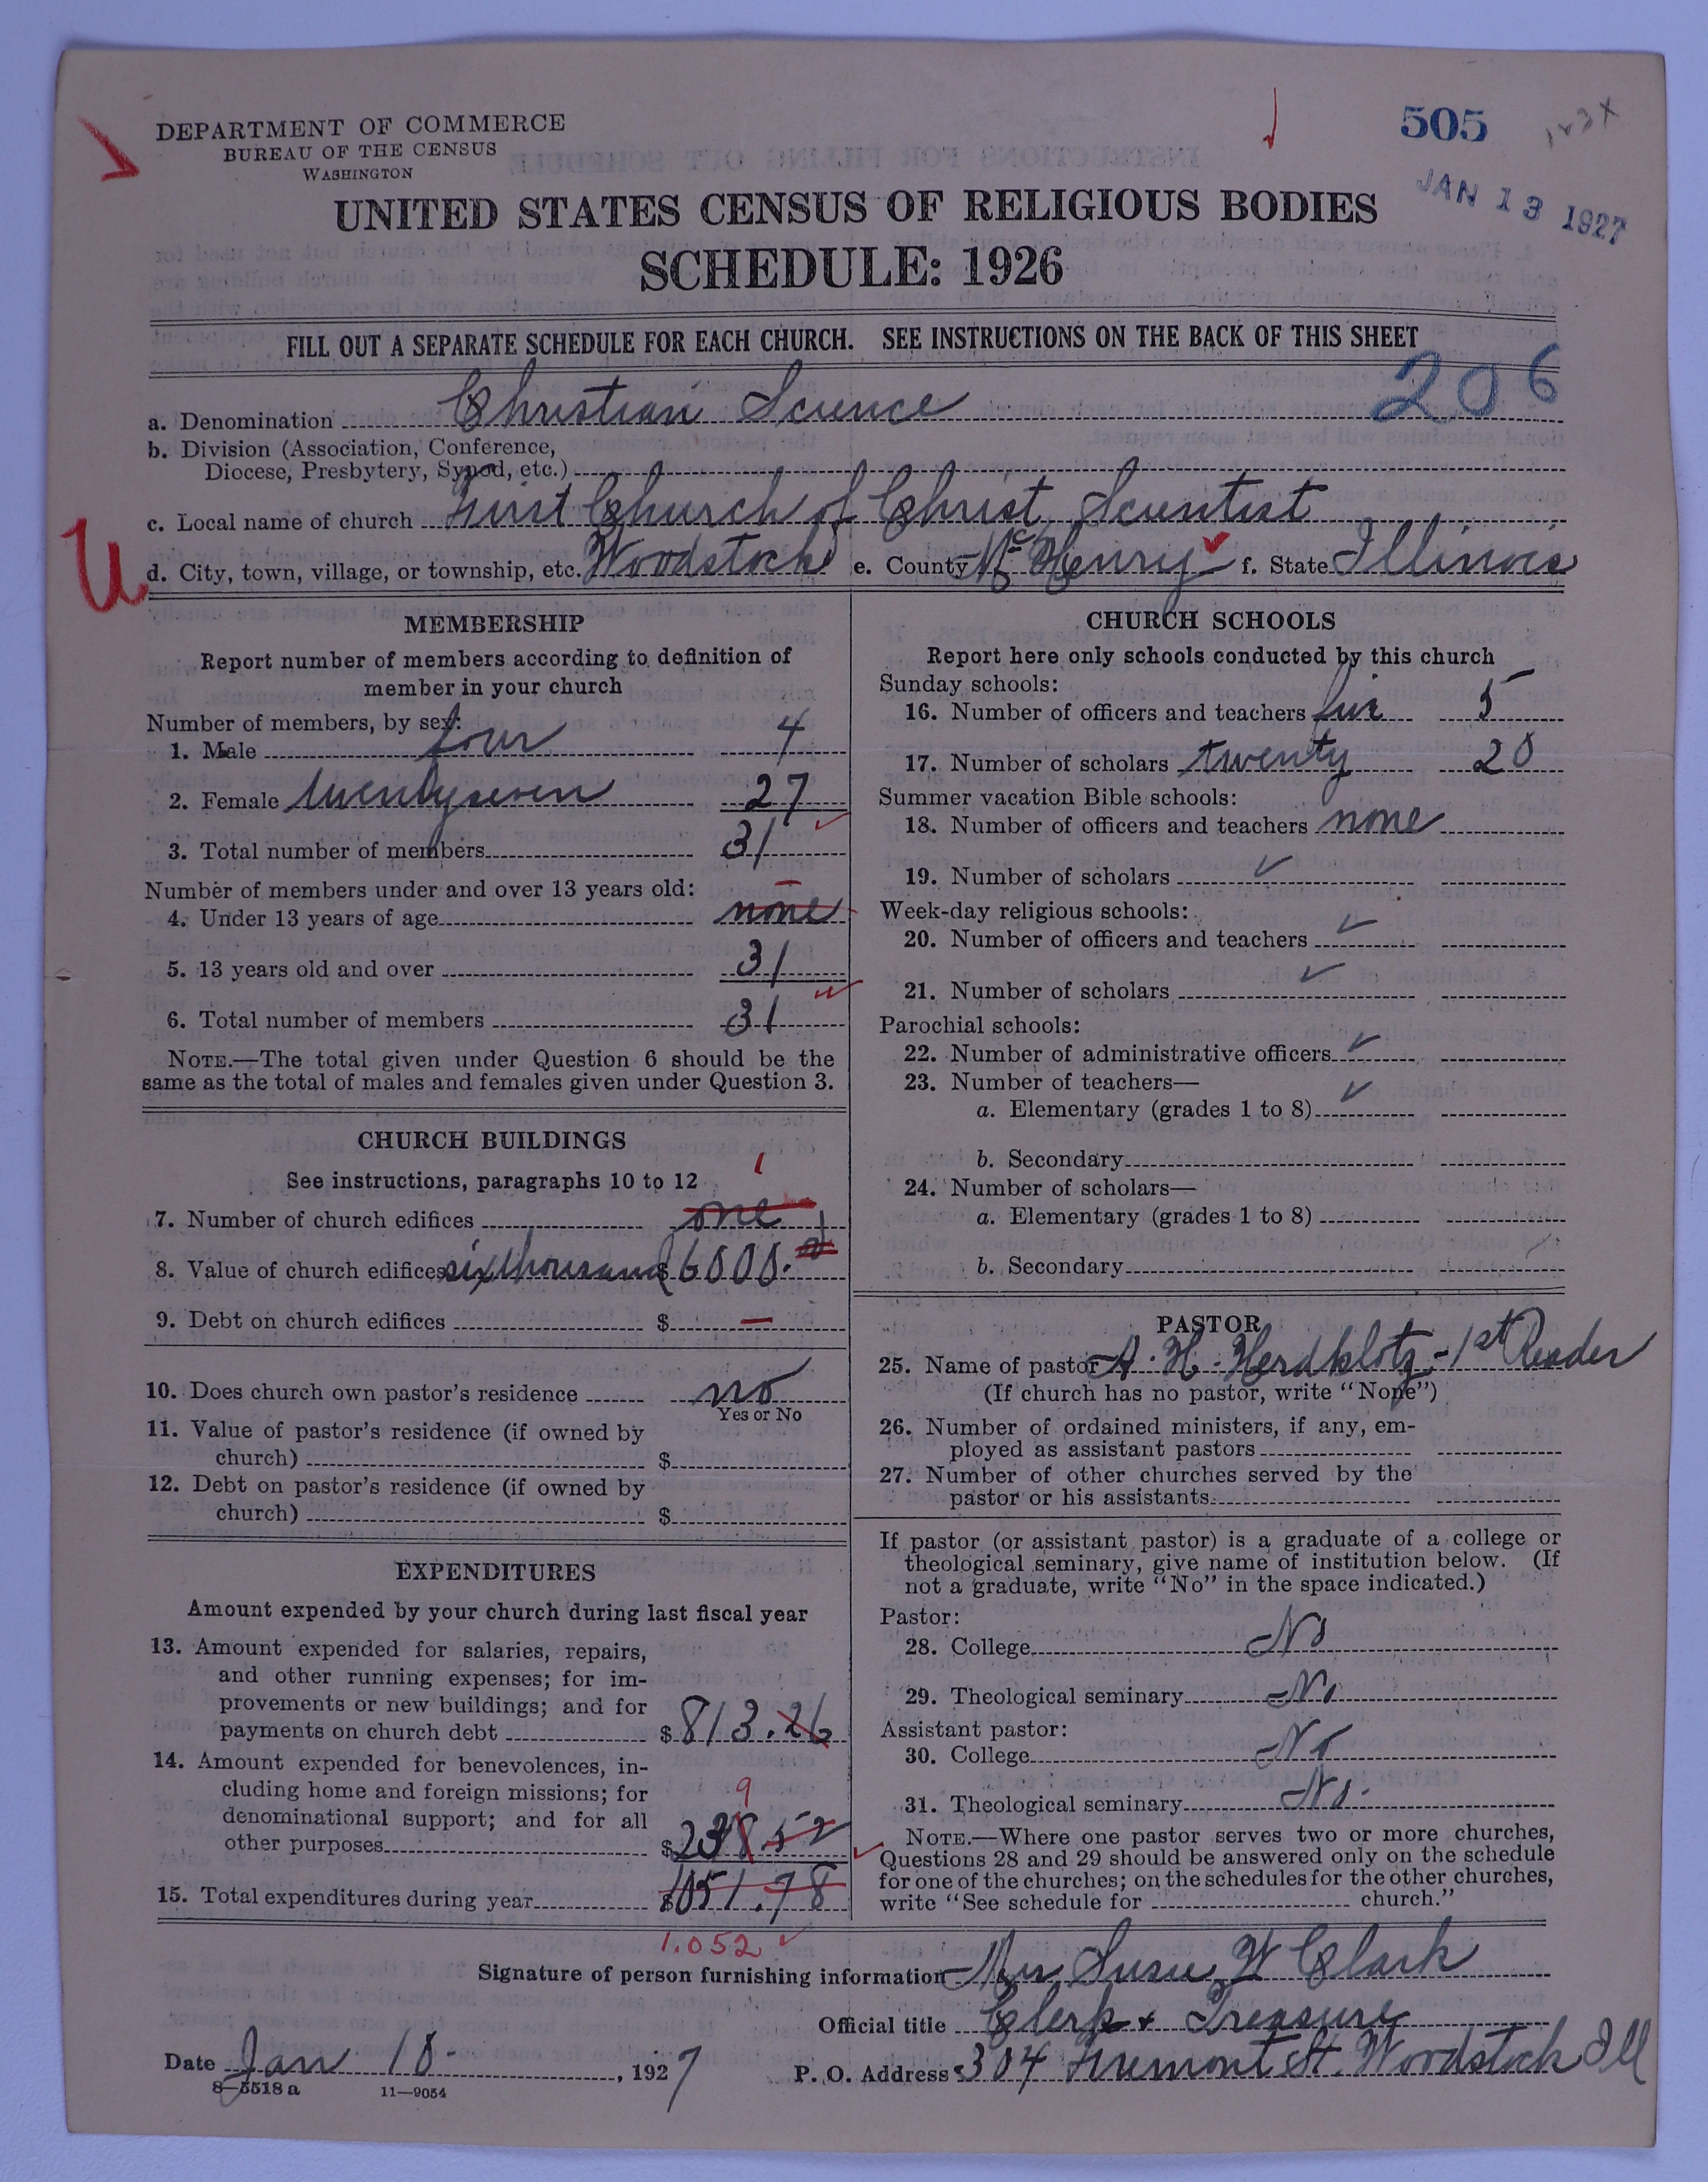 DEPARTMENT OF COMMERCE
BUREAU OF THE CENSUS
WASHINGTON
505
JAN 13 1927
UNITED STATES CENSUS OF RELIGIOUS BODIES
SCHEDULE: 1926
FILL OUT A SEPARATE SCHEDULE FOR EACH CHURCH. SEE INSTRUCTIONS ON THE BACK OF THIS SHEET
206
a. Denomination Christian Science
b. Division (Association, Conference,
Diocese, Presbytery, Synod, etc.)
c. Local name of church First Church of Christ, Scientist
U
d. City, town, village, or township, etc. Woodstock e. County McHenry f. State Illinois
MEMBERSHIP
Report number of members according to definition of
member in your church
Number of members, by sex:
1. Male four 4
2. Female twenty seven 27
3. Total number of members 31
Number of members under and over 13 years old:
4. Under 13 years of age none
5. 13 years old and over 31
6. Total number of members 31
NOTE.—The total given under Question 6 should be the
same as the total of males and females given under Question 3.
CHURCH BUILDINGS
See instructions, paragraphs 10 to 12
1
7. Number of church edifices one
8. Value of church edifices six thousand $6000.
9. Debt on church edifices $ —
10. Does church own pastor's residence no
Yes or No
11. Value of pastor's residence (if owned by
church) $
12. Debt on pastor's residence (if owned by
church) $
EXPENDITURES
Amount expended by your church during last fiscal year
13. Amount expended for salaries, repairs,
and other running expenses; for im-
provements or new buildings; and for
payments on church debt $813.26
14. Amount expended for benevolences, in-
cluding home and foreign missions; for
9
denominational support; and for all
other purposes $238.52
15. Total expenditures during year $1051.78
1.052
CHURCH SCHOOLS
Report here only schools conducted by this church
Sunday schools:
16. Number of officers and teachers five 5
17. Number of scholars twenty 20
Summer vacation Bible schools:
18. Number of officers and teachers none
19. Number of scholars ✓
Week-day religious schools:
20. Number of officers and teachers ✓
21. Number of scholars ✓
Parochial schools:
22. Number of administrative officers ✓
23. Number of teachers—
a. Elementary (grades 1 to 8) ✓
b. Secondary
24. Number of scholars—
a. Elementary (grades 1 to 8)
b. Secondary
PASTOR
25. Name of pastor A. H. Herdklotz - 1st Reader
(If church has no pastor, write "None")
26. Number of ordained ministers, if any, em-
ployed as assistant pastors
27. Number of other churches served by the
pastor or his assistants
If pastor (or assistant pastor) is a graduate of a college or
theological seminary, give name of institution below. (If
not a graduate, write "No" in the space indicated.)
Pastor:
28. College No
29. Theological seminary No
Assistant pastor:
30. College No
31. Theological seminary No.
NOTE.—Where one pastor serves two or more churches,
Questions 28 and 29 should be answered only on the schedule
for one of the churches; on the schedules for the other churches,
write "See schedule for church."
Signature of person furnishing information Mrs Susie W Clark
Official title Clerk + Treasure
Date Jan 10 - , 1927
P. O. Address 304 Fremont St. Woodstock Ill
8—5518 a 11—9054